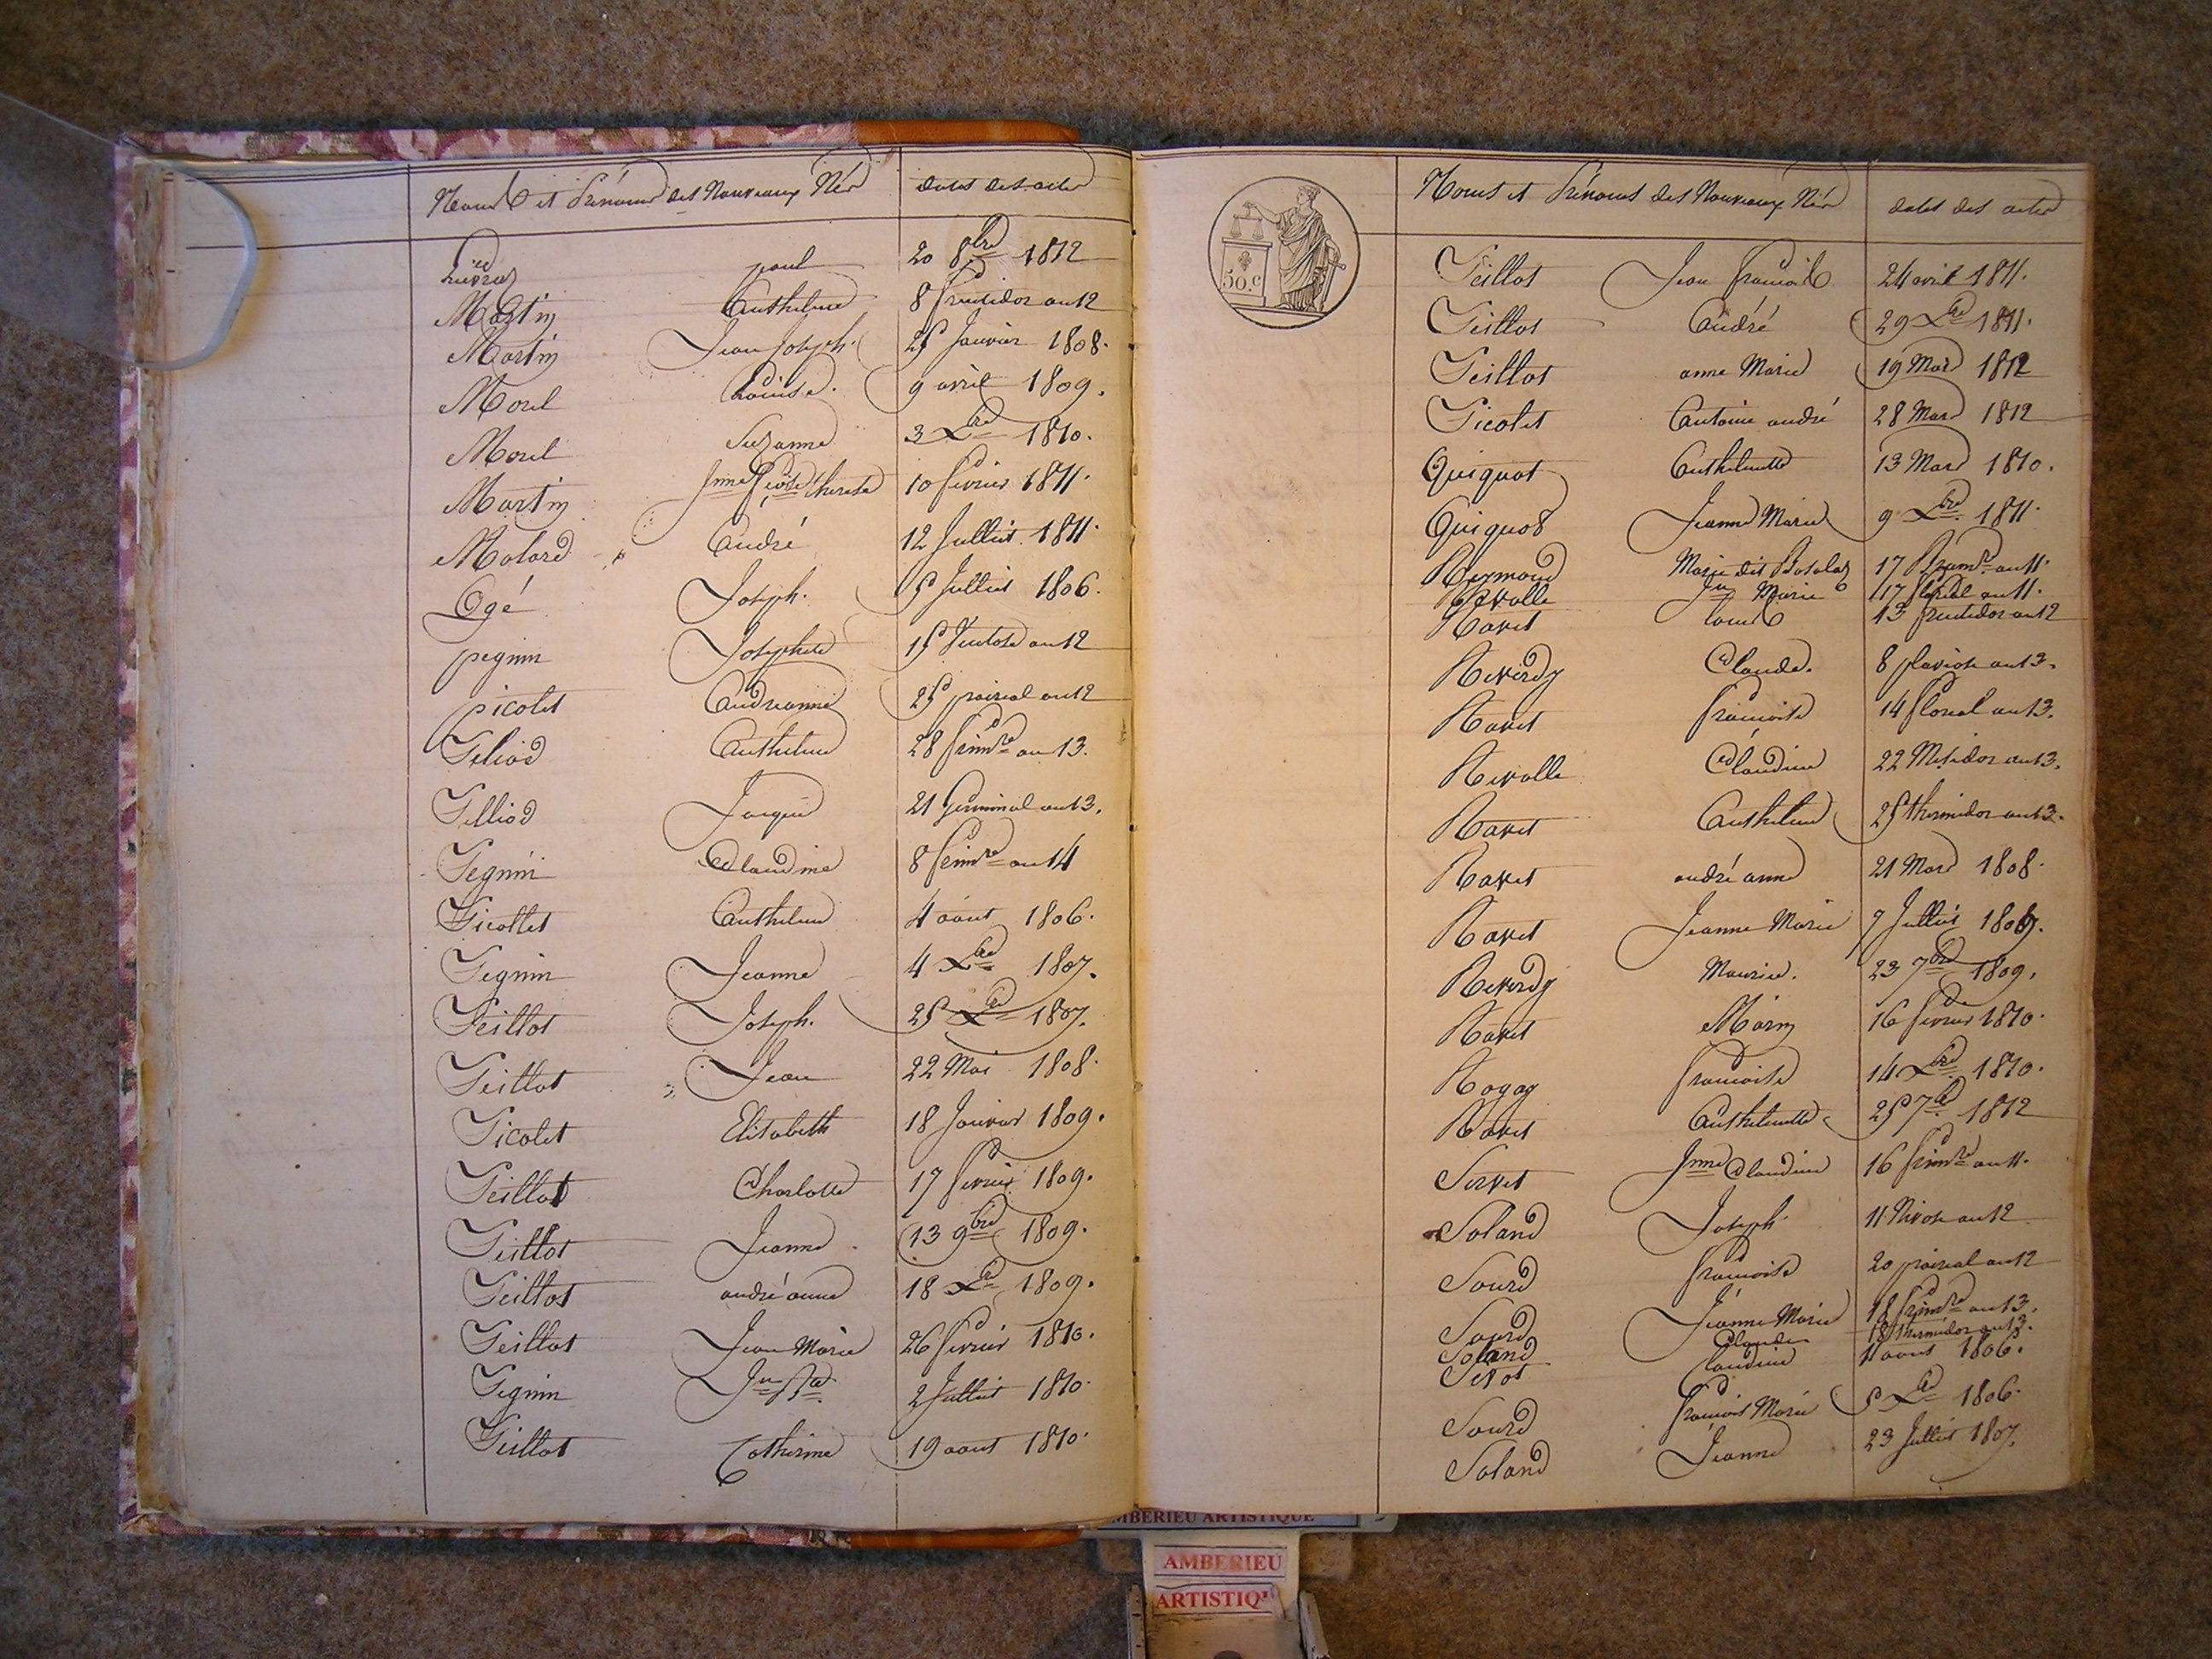 Noms et Prénoms des Nouveaux Nés dates des actes
paul 20 8bre 1812
Martin Anthelme 8 fructidor an 12
Martin Jean Joseph 25 Janvier 1808.
Morel Louise. 9 avril 1809.
Morel Suzanne 3 Xbre 1810.
Martin Jnne therese 10 fevrier 1811.
Molard André 12 Juillet 1811.
Ogé Joseph. 5 Juillet 1806.
pegnin Josephte 15 Ventose an 12
picolet Andreanne 25 prairial an 12
Peliod Anthelme 28 frimre an 13.
Pelliod Jacques 21 Germinal an 13.
Pegnin Claudine 8 frimre an 14
Picollet Anthelme 4 aout 1806.
Pegnin Jeanne 4 Xbre 1807.
Peillot Joseph. 25 Xbre 1807.
Peillot Jean 22 Mai 1808.
Picolet Elisabeth 18 Janvier 1809.
Peillot Charlotte 17 fevrier 1809.
Peillot Jeanne 13 9bre 1809.
Peillot andré anne 18 Xbre 1809.
Peillot Jean Marie 26 fevrier 1810.
Pegnin Jn Bte 2 Juillet 1810.
Peillot Catherine 19 aout 1810.
Noms et Prénoms des Nouveaux Nés dates des actes
50.c
Peillot Jean francois 24 avril 1811.
Peillot André 29 Xbre 1811.
Peillot anne Marie 19 Mars 1812
Picolet Antoine andré 28 Mars 1812
Quiquot Anthelmette 13 Mars 1810.
Quiquot Jeanne Marie 9 Xbre 1811.
Reymond Marie dit 17 Brumre an 11.
Revolle Jn Marie 17 floreal an 11.
Ravet Louis 13 fructidor an 12
Reverdy Claude. 8 pluviose an 13.
Ravet francoise 14 floreal an 13.
Revolle Claudine 22 Mesidor an 13.
Ravet Anthelme 25 thermidor an 13.
Ravet andré anne 21 Mars 1808.
Ravet Jeanne Marie 7 Juillet 1809.
Reverdy Maurice. 23 7bre 1809.
Ravet Marin 16 fevrier 1810.
Rogay francoise 14 Xbre 1810.
Ravet Anthelmette 25 7bre 1812
Servet Jnne Claudine 16 frimre an 11.
Soland Joseph 11 Nivose an 12
Sourd francoise 20 prairial an 12
Sourd Jeanne Marie 18 frimre an 13.
Soland Claude 18 thermidor an 13.
Sevos Claudine 11 aout 1806.
Sourd francois Marie 5 Xbre 1806.
Soland Jeanne 23 Juillet 1807.
AMBERIEU ARTISTIQUE
AMBERIEU
ARTISTIQ